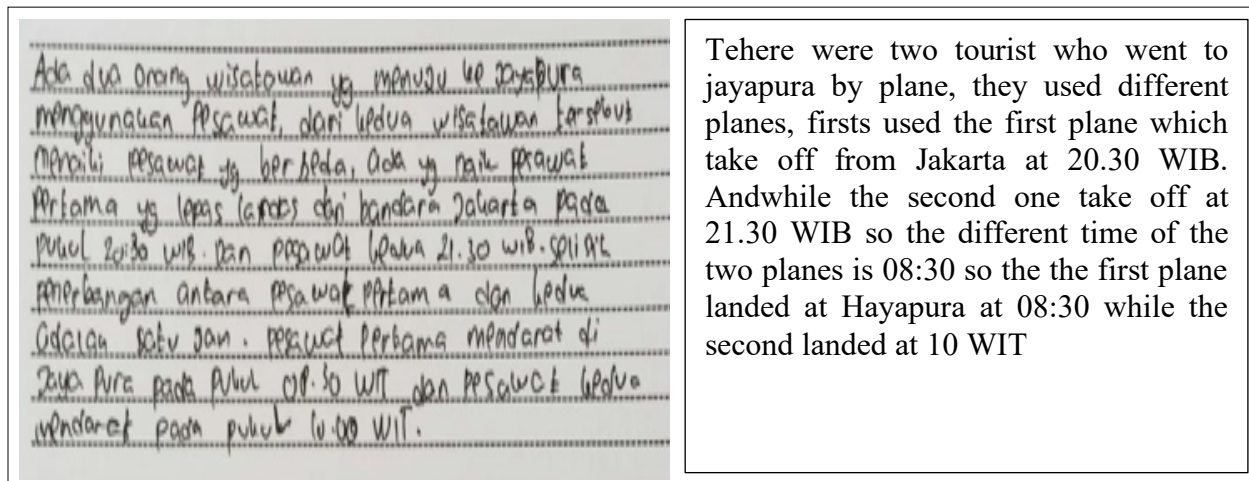 Ada dua orang wisatawan yg menuju ke Jayapura
menggunakan pesawat, dari kedua wisatawan tersebut
menaiki pesawat yg berbeda, ada yg naik pesawat
pertama yg lepas landas dari bandara Jakarta pada
pukul 20:30 WIB. Dan pesawat kedua 21.30 WIB. selisih
penerbangan antara pesawat pertama dan kedua
adalah satu jam. pesawat pertama mendarat di
Jayapura pada pukul 08.30 WIT dan pesawat kedua
mendarat pada pukul 10.00 WIT.
Tehere were two tourist who went to
jayapura by plane, they used different
planes, firsts used the first plane which
take off from Jakarta at 20.30 WIB.
Andwhile the second one take off at
21.30 WIB so the different time of the
two planes is 08:30 so the the first plane
landed at Hayapura at 08:30 while the
second landed at 10 WIT